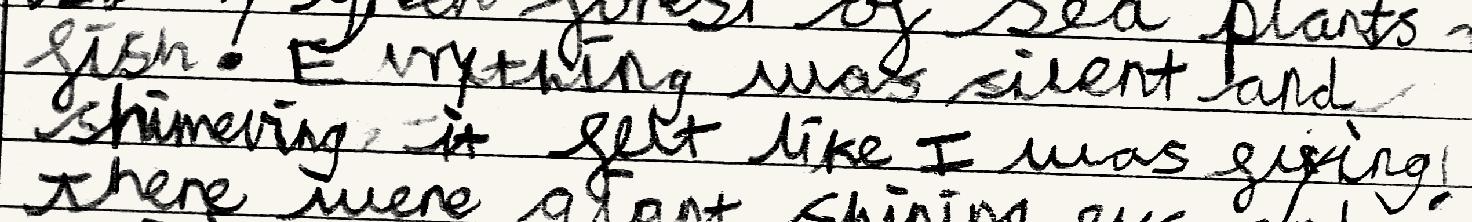 green forest of sea plants
fish. E vrything was silent and
shimeving it felt like I was
there were giant shining